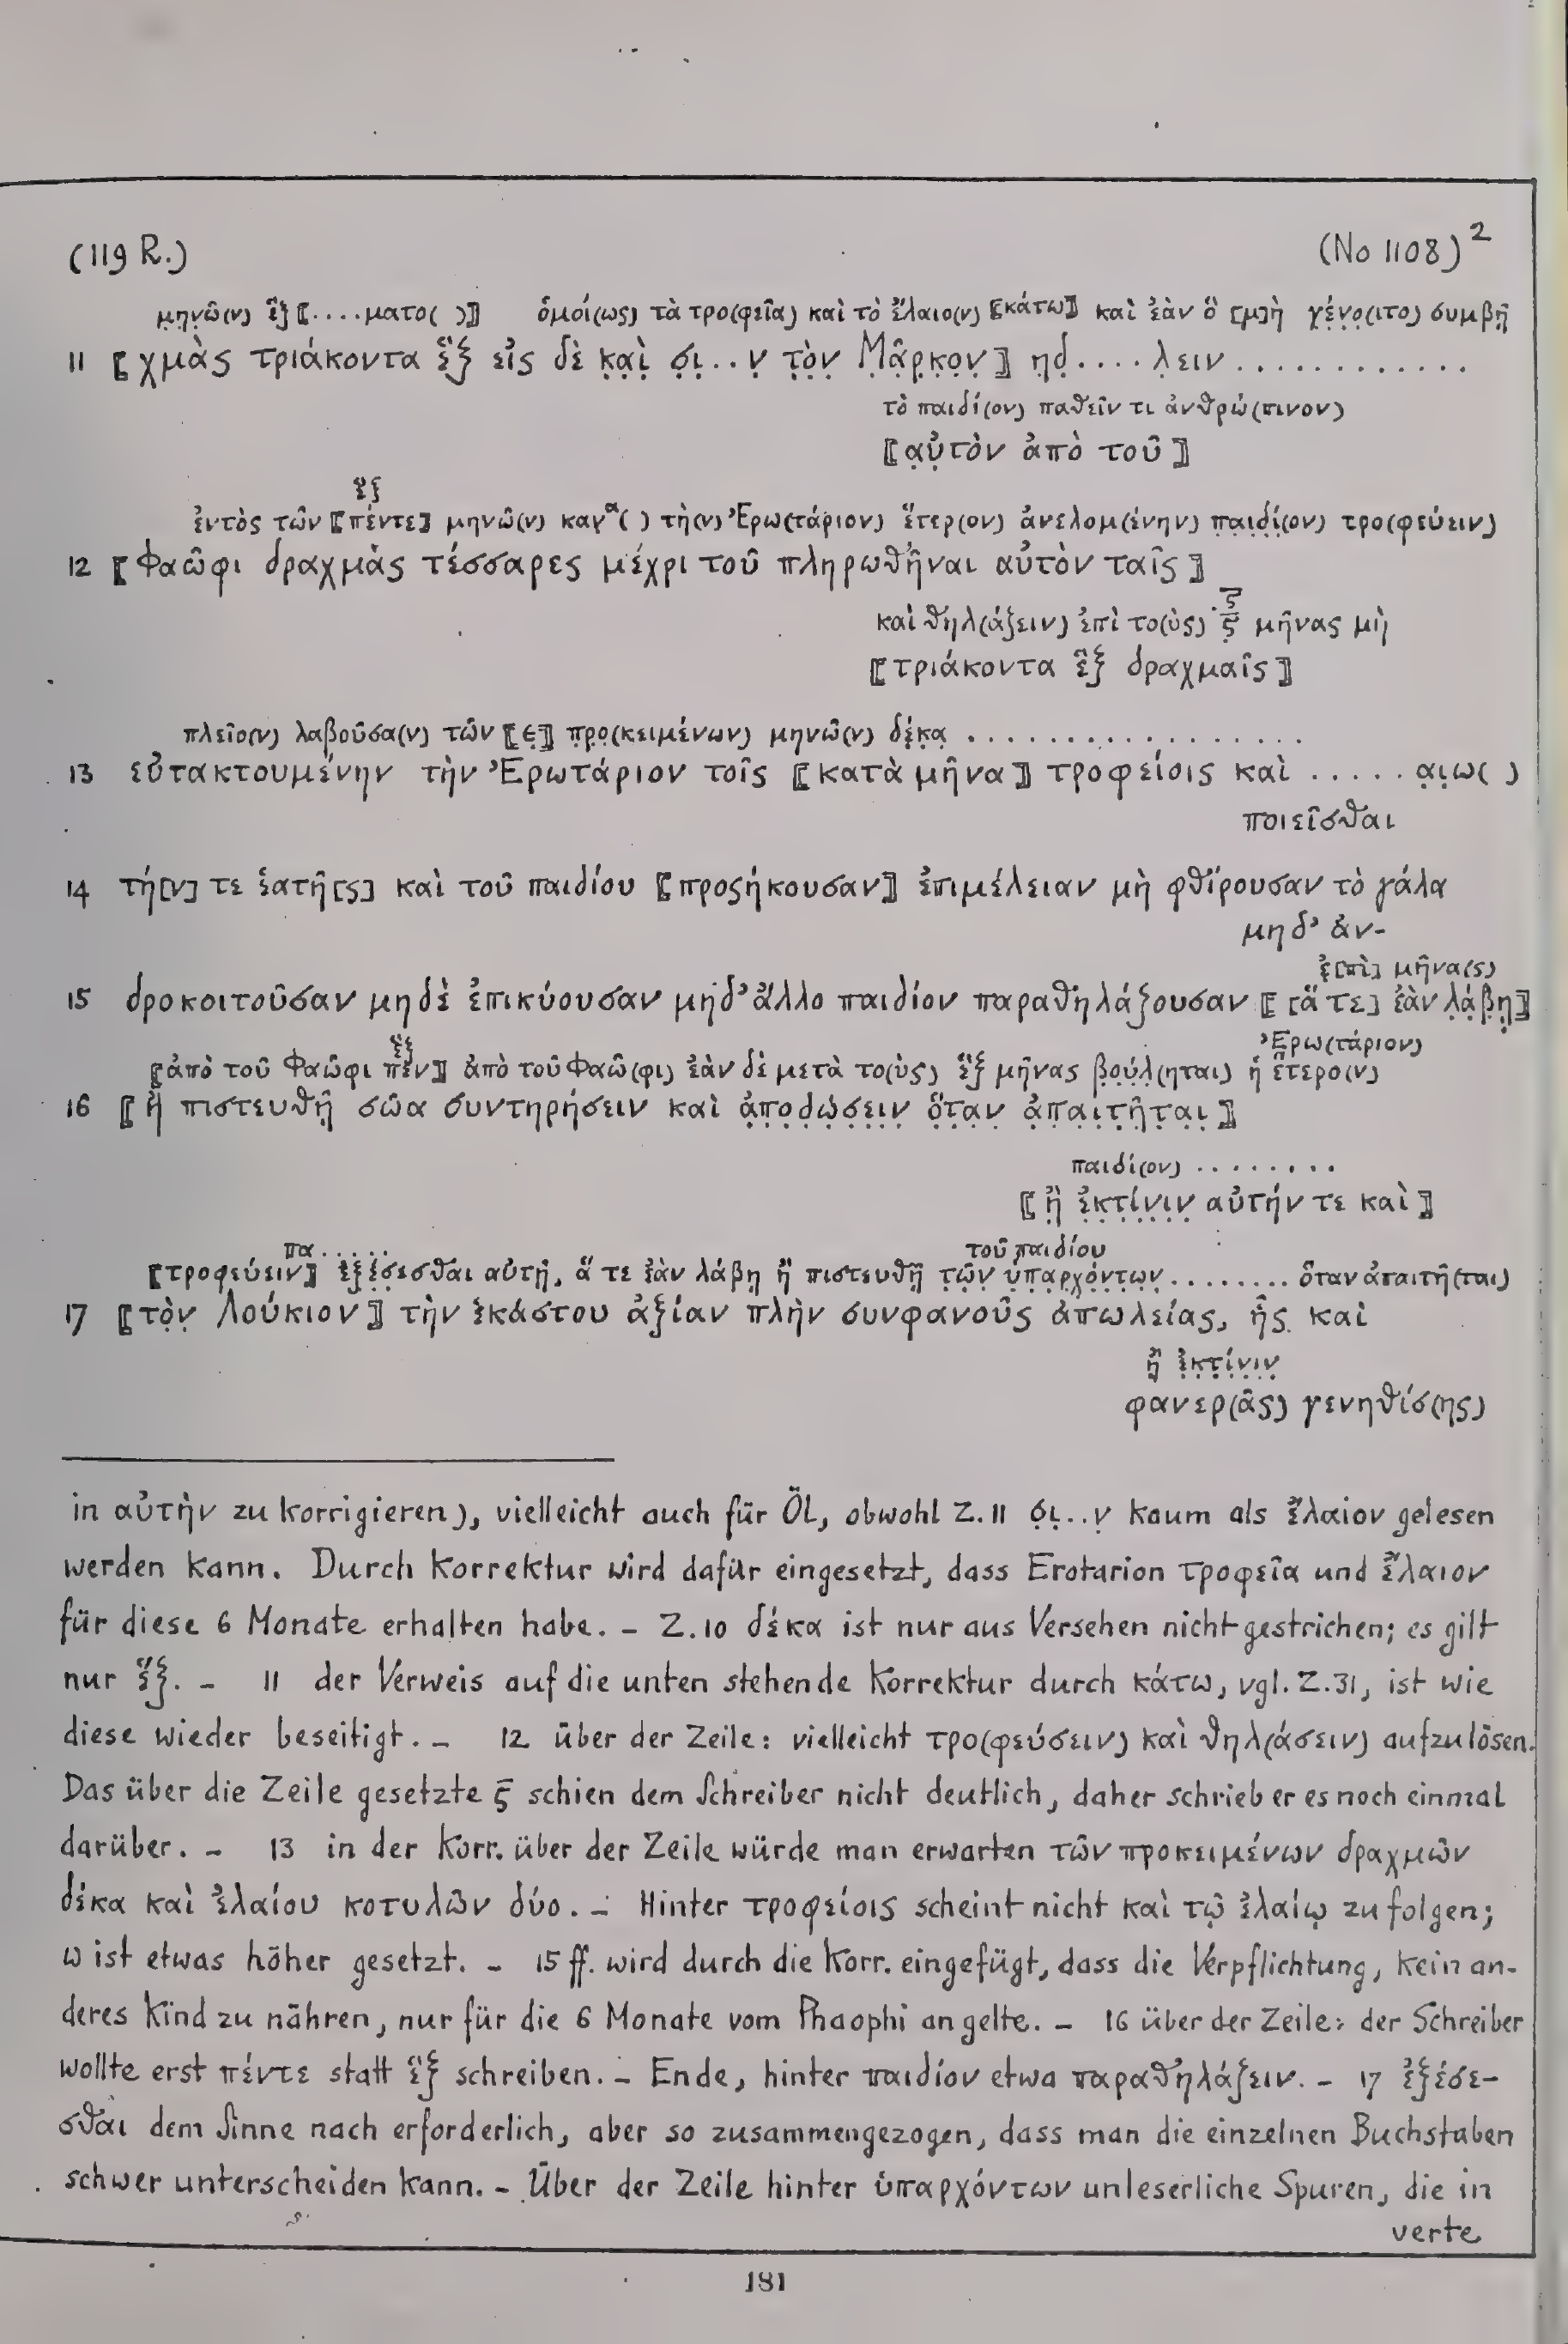 (119 R.) (No 1108)²
μ̣η̣ν̣ῶ(ν) ἓξ ⟦....ματο( )⟧ ὁμοί(ως) τὰ τρο(φεῖα) καὶ τὸ ἔλαιο(ν) ⟦κάτω⟧ καὶ ἐὰν ὃ [μ]ὴ γέ̣ν̣ο̣(ιτο) συμβῇ
11 ⟦χμὰς τριάκοντα ἓξ εἰς δὲ κ̣α̣ὶ̣ σ̣ι̣..ν̣ τ̣ὸ̣ν̣ Μ̣ᾶ̣ρ̣κ̣ο̣ν̣⟧ ηδ̣....λ̣ειν............
τὸ παιδί(ον) παθεῖν τι ἀνθρώ(πινον)
⟦α̣ὐ̣τὸν ἀπὸ τοῦ⟧
ἓξ
ἐντὸς τῶν ⟦πέντε⟧ μηνῶ(ν) καγᵅ( ) τὴ(ν) Ἐρω(τάριον) ἕτερ(ον) ἀνελομ(ένην) π̣α̣ι̣δ̣ί̣(ον) τρο(φεύειν)
12 ⟦Φαῶφι δραχμὰς τέσσαρες μέχρι τοῦ πληρωθῆναι αὐτὸν ταῖς⟧
ϛ̅
καὶ θηλ(άζειν) ἐπὶ το(ὺς) ϛ̅ μῆνας μὴ
⟦τριάκοντα ἓξ δραχμαῖς⟧
πλεῖο(ν) λαβοῦσα(ν) τῶν ⟦ε̣⟧ π̣ρ̣ο̣(κειμένων) μηνῶ(ν) δέ̣κ̣α̣ .................
13 εὐτακτουμένην τὴν Ἐρωτάριον τοῖς ⟦κατὰ μῆνα⟧ τροφείοις καὶ ..... α̣ι̣ω( )
ποιεῖσθαι
14 τή[ν] τε ἑατῆ[ς] καὶ τοῦ παιδίου ⟦προςήκουσαν⟧ ἐπιμέλειαν μὴ φθίρουσαν τὸ γάλα
μηδ’ ἀν-
ἐ[πὶ] μῆνα(ς)
15 δροκοιτοῦσαν μηδὲ ἐπικύουσαν μηδ’ ἄλλο παιδίον παραθηλάζουσαν ⟦[ἅ τε] ἐὰν λ̣ά̣β̣η̣⟧
Ἐρω(τάριον)
ἓξ
⟦ἀπὸ τοῦ Φαῶφι πεν⟧ ἀπὸ τοῦ Φαῶ(φι) ἐὰν δὲ μετὰ το(ὺς) ἓξ μῆνας β̣ο̣ύ̣λ̣(ηται) ἡ ἕτερο(ν)
16 ⟦ἢ πιστευθῇ σῶα συντηρήσειν καὶ ἀ̣π̣ο̣δ̣ώ̣σ̣ε̣ι̣ν̣ ὅ̣τ̣α̣ν̣ ἀ̣π̣α̣ι̣τ̣ῆ̣τ̣α̣ι̣⟧
παιδί(ον) ........
⟦ἢ̣ ἐ̣κ̣τ̣ί̣ν̣ι̣ν̣ αὐτήν τε καὶ⟧
πα..... τοῦ παιδίου
⟦τροφεύειν⟧ ἐ̣ξ̣έ̣σ̣εσθαι αὐτῇ, ἅ τε ἐὰν λάβῃ ἢ πιστευθῇ τ̣ῶ̣ν̣ ὑ̣π̣α̣ρ̣χ̣ό̣ν̣τ̣ω̣ν̣........ ὅταν ἀπαιτῆ(ται)
17 ⟦τὸ̣ν Λούκιον⟧ τὴν ἑκάστου ἀξίαν πλὴν συνφανοῦς ἀπωλείας, ἧς καὶ
ἢ̣ ἐ̣κ̣τ̣ί̣ν̣ι̣ν̣
φανερ(ᾶς) γενηθίσ(ης)
in αὐτὴν zu korrigieren), vielleicht auch für Öl, obwohl Z. 11 σ̣ι̣..ν̣ kaum als ἔλαιον gelesen
werden kann. Durch Korrektur wird dafür eingesetzt, dass Erotarion τροφεῖα und ἔλαιον
für diese 6 Monate erhalten habe. – Z. 10 δέκα ist nur aus Versehen nicht gestrichen; es gilt
nur ἕξ. – 11 der Verweis auf die unten stehende Korrektur durch κάτω, vgl. Z. 31, ist wie
diese wieder beseitigt. – 12 über der Zeile: vielleicht τρο(φεύσειν) καὶ θηλ(άσειν) aufzulösen.
Das über die Zeile gesetzte ϛ̅ schien dem Schreiber nicht deutlich, daher schrieb er es noch einmal
darüber. – 13 in der Korr. über der Zeile würde man erwarten τῶν προκειμένων δραχμῶν
δέκα καὶ ἐλαίου κοτυλῶν δύο. – Hinter τροφείοις scheint nicht καὶ τῷ ἐλαίῳ zu folgen;
ω ist etwas höher gesetzt. – 15 ff. wird durch die Korr. eingefügt, dass die Verpflichtung, kein an-
deres Kind zu nähren, nur für die 6 Monate vom Phaophi an gelte. – 16 über der Zeile: der Schreiber
wollte erst πέντε statt ἓξ schreiben. – Ende, hinter παιδίον etwa παραθηλάζειν. – 17 ἐξέσε-
σθαι dem Sinne nach erforderlich, aber so zusammengezogen, dass man die einzelnen Buchstaben
schwer unterscheiden kann. – Über der Zeile hinter ὑπαρχόντων unleserliche Spuren, die in
verte
181